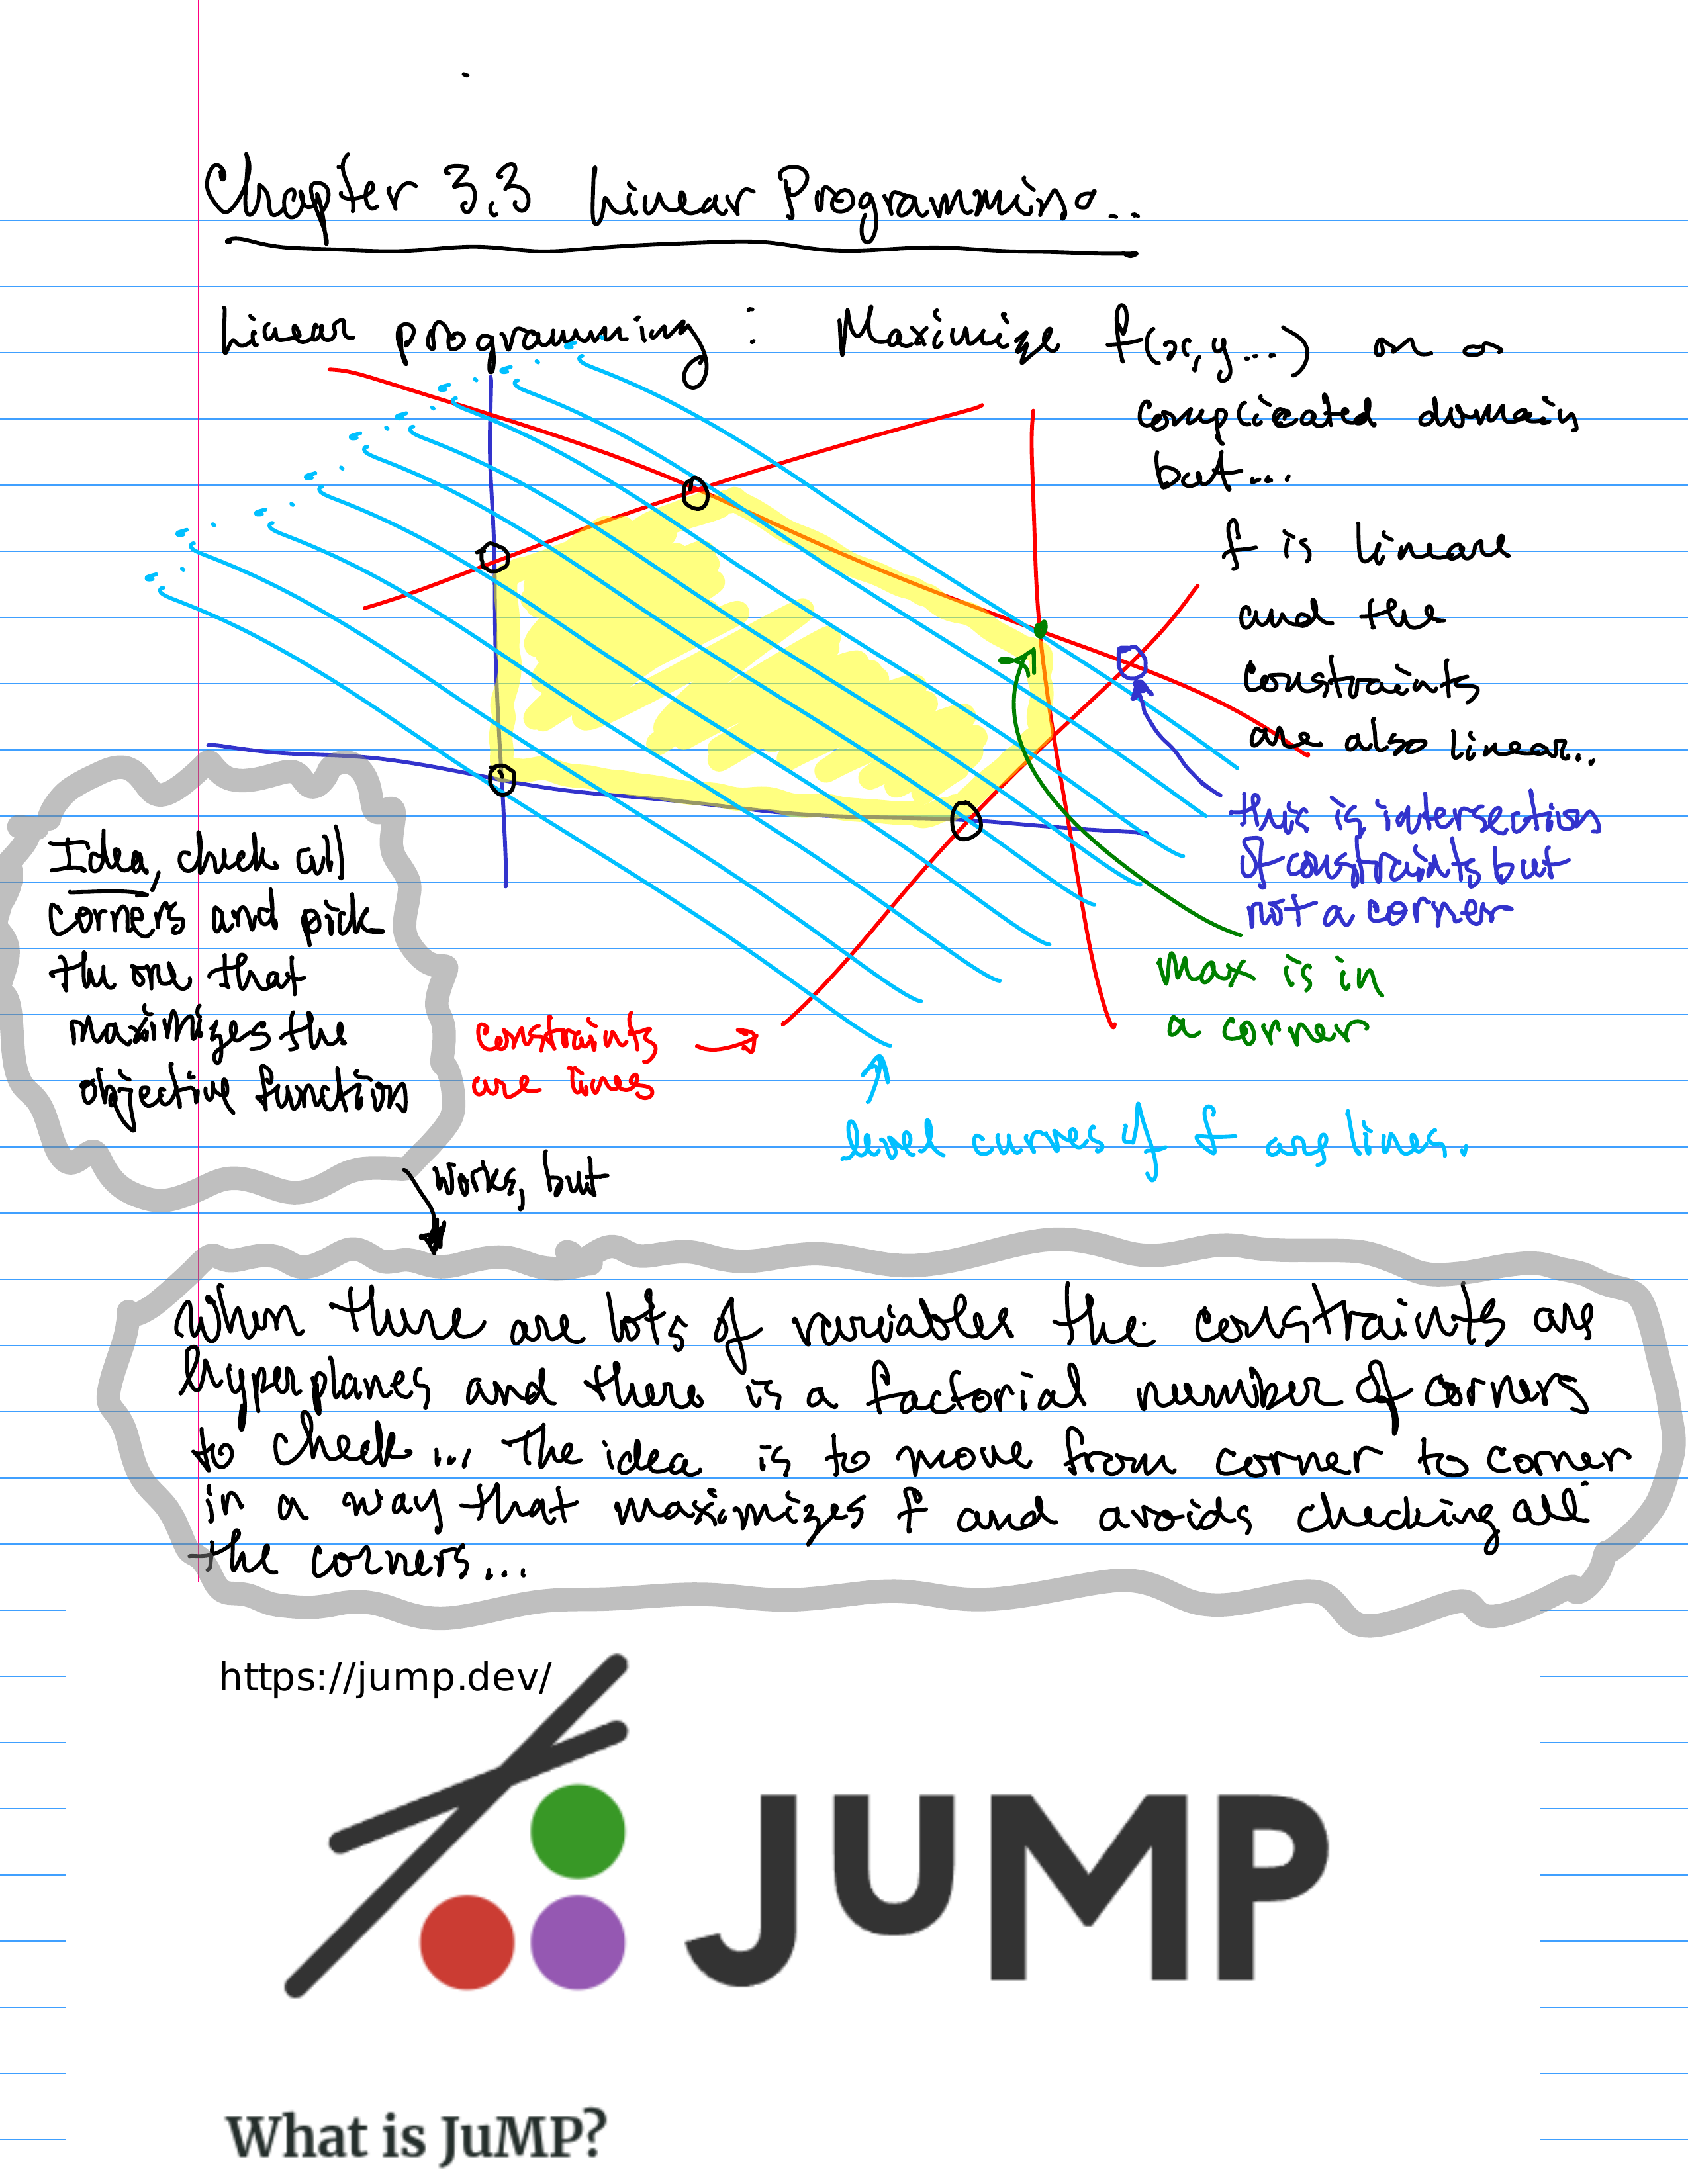 Chapter 3.3 Linear Programming..
Linear programming: Maximize f(x,y...) on a
complicated domain
but...
f is lineare
and the
constraints
are also linear..
this is intersection
of constraints but
not a corner
Max is in
a corner
Idea, check all
corners and pick
the one that
maximizes the
objective function
constraints
are lines
level curves of f are lines.
works, but
When there are lots of variables the constraints are
hyperplanes and there is a factorial number of corners
to check... The idea is to move from corner to corner
in a way that maximizes f and avoids checking all
the corners...
https://jump.dev/
JuMP
What is JuMP?